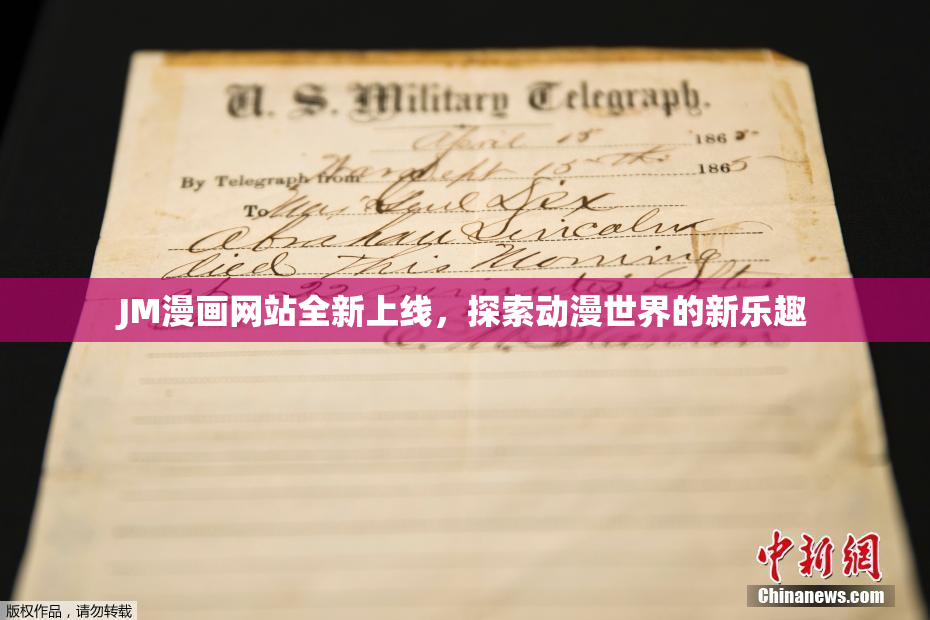 U. S. Military Telegraph.
April 15 1865
By Telegraph from War Dept 15th 1865
To Maj Genl Dix
Abraham Lincoln
died This Morning
at 22 minutes after
JM漫画网站全新上线，探索动漫世界的新乐趣
中新网
Chinanews.com
版权作品，请勿转载